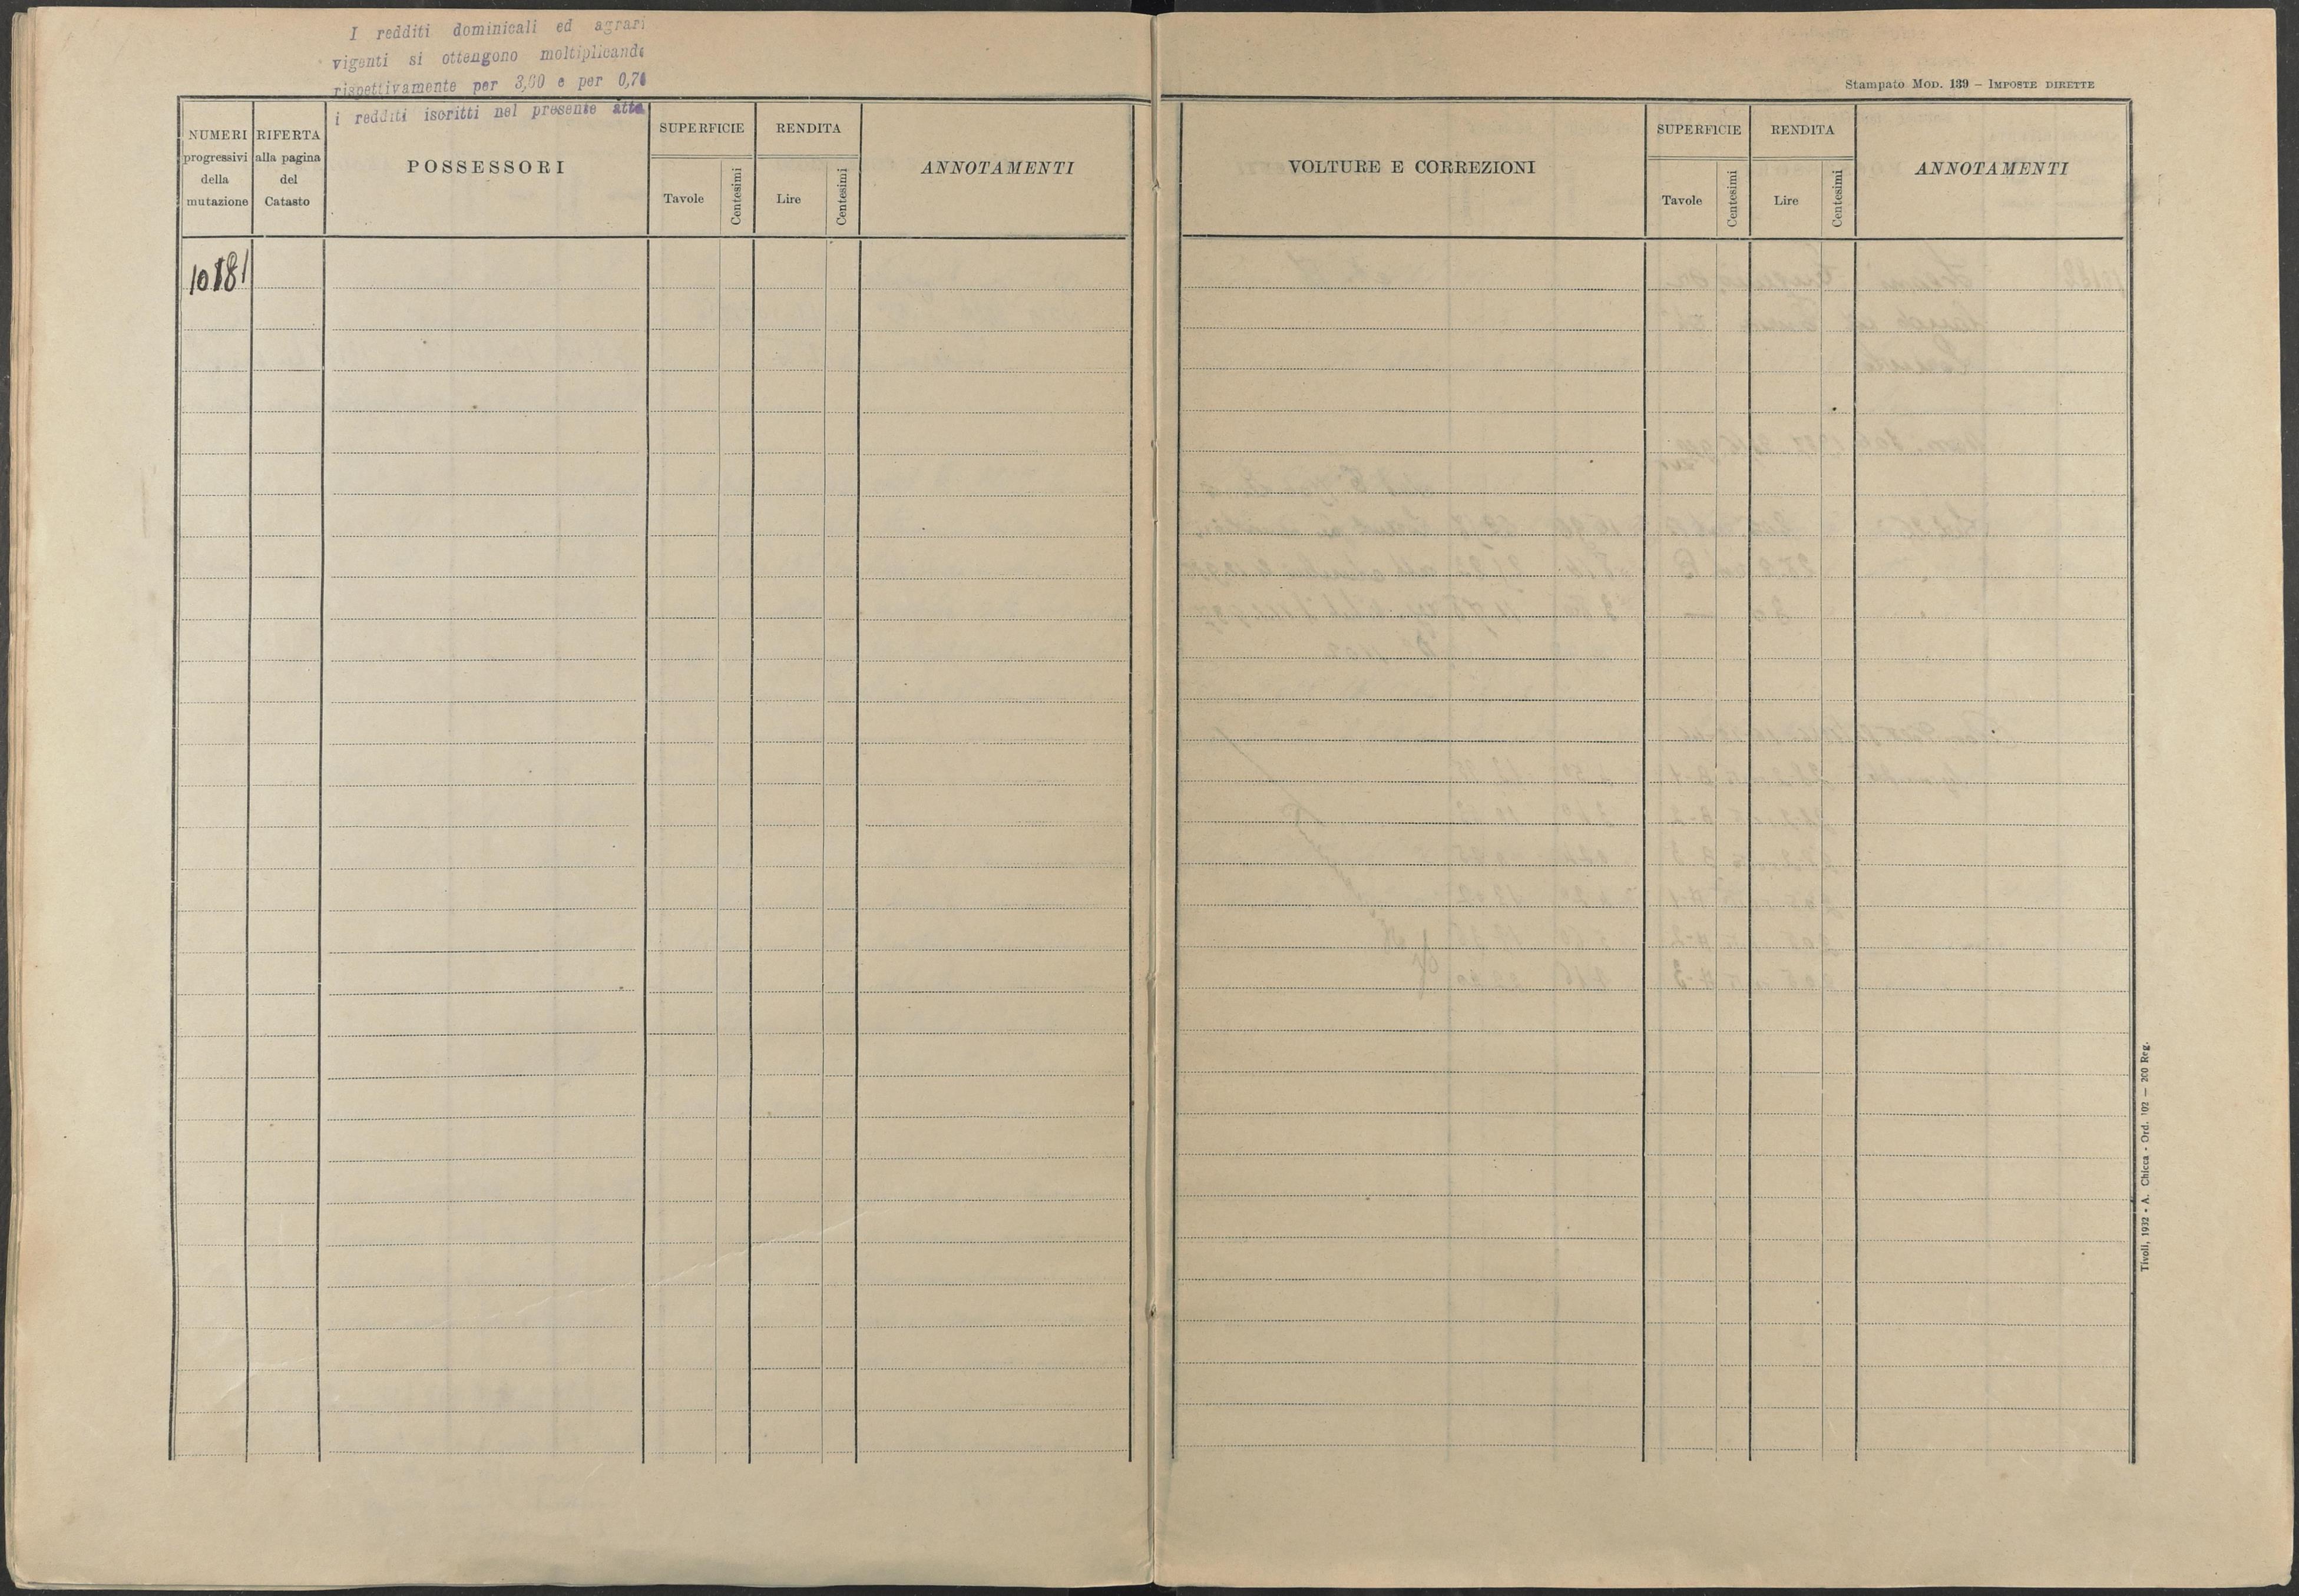 I redditi dominicali ed agrari
vigenti si ottengono moltiplicando
rispettivamente per 3,60 e per 0,70
i redditi iscritti nel presente atto
NUMERI
progressivi
della
mutazione
RIFERTA
alla pagina
del
Catasto
POSSESSORI
SUPERFICIE
Tavole
Centesimi
RENDITA
Lire
Centesimi
ANNOTAMENTI
10181
Stampato Mod. 139 – Imposte dirette
VOLTURE E CORREZIONI
SUPERFICIE
Tavole
Centesimi
RENDITA
Lire
Centesimi
ANNOTAMENTI
Tivoli, 1932 - A. Chicca - Ord. 102 — 200 Reg.